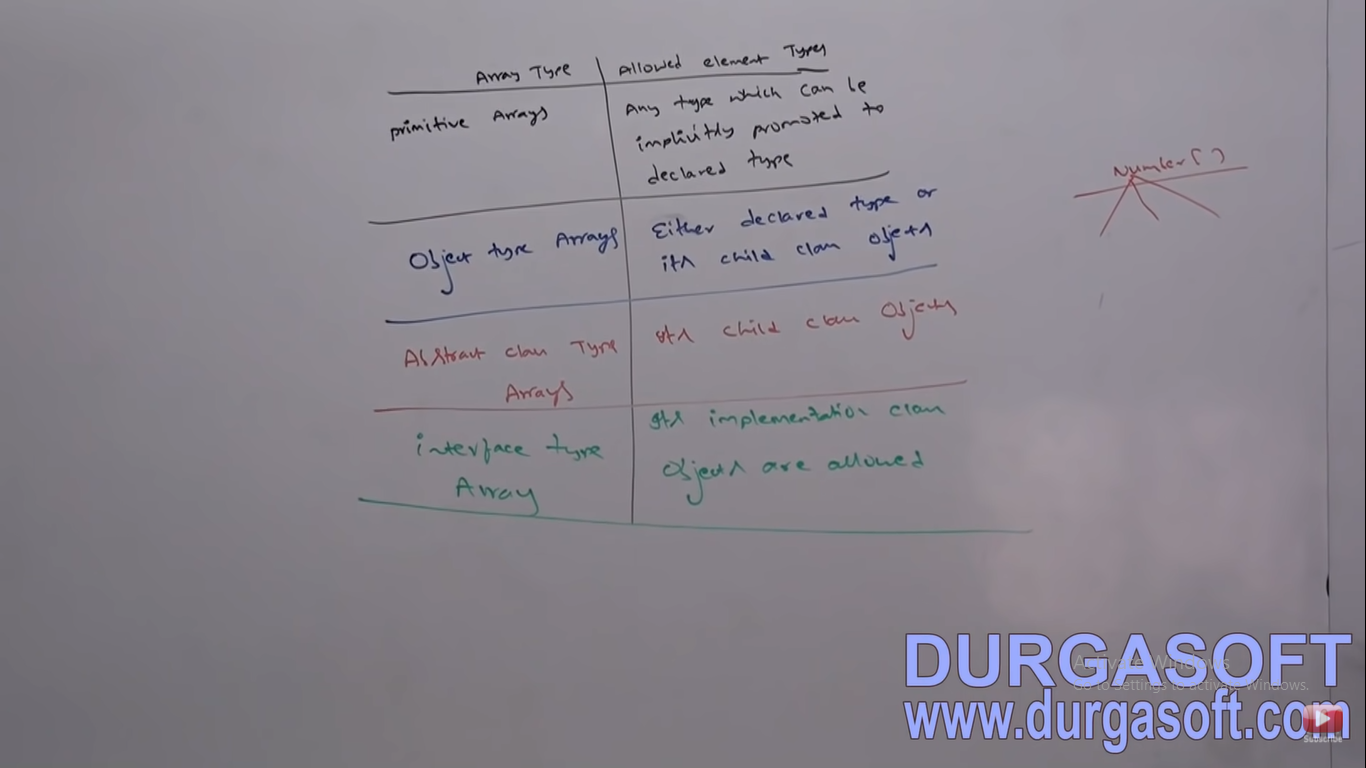 Array Type
Allowed element Types
primitive Arrays
Any type which can be
implicitly promoted to
declared type
Number[ ]
Object type Arrays
Either declared type or
its child class objects
Abstract class Type
Arrays
Its child class Objects
interface type
Array
Its implementation class
Objects are allowed
DURGASOFT
Activate Windows
Go to Settings to activate Windows.
www.durgasoft.com
Subscribe